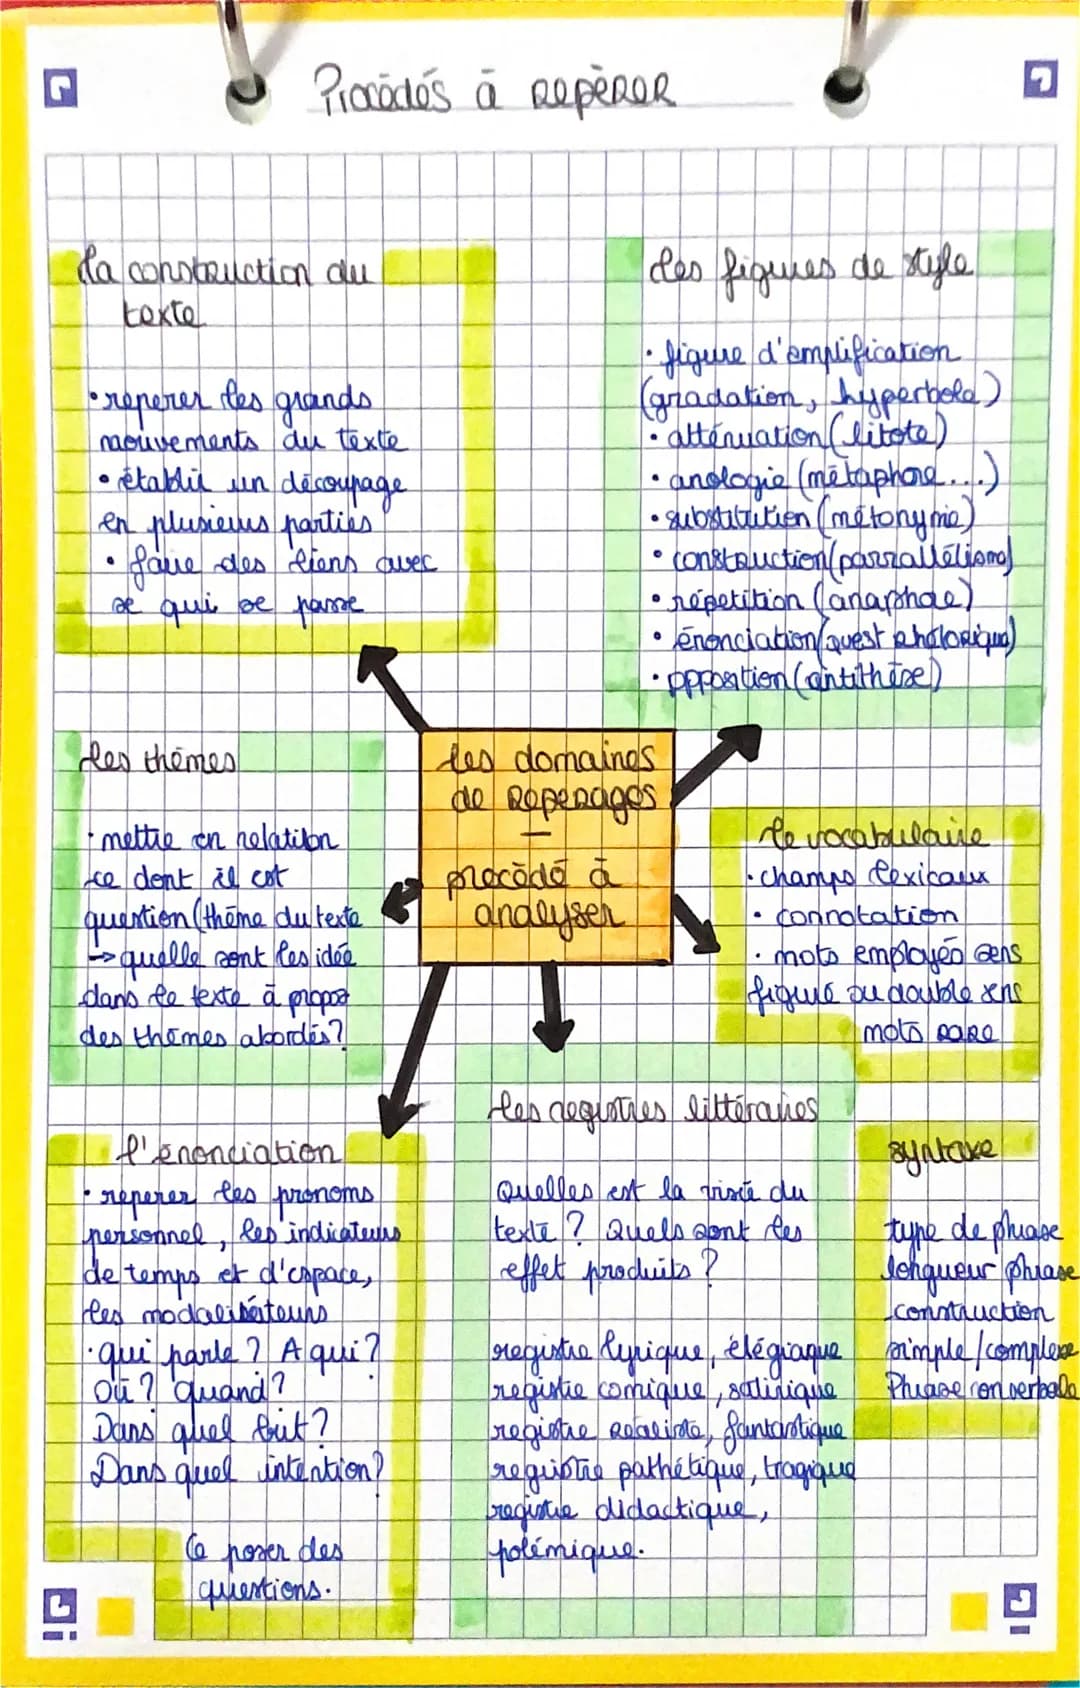 Procédés à REPÈRER
la construction du
texte
• réperer les grands
mouvements du texte
• établir un découpage
en plusieurs parties
• faire des liens avec
se qui se passe
les figures de style
• figure d'emplification
(gradation, hyperbole)
• atténuation (litote)
• anologie (métaphore....)
• substitution (métonymie)
• construction (parrallélisme)
• répetition (anaphore)
• énonciation (quest rhétorique)
• opposition (antithèse)
les thèmes
• mettre en relation
ce dont il est
question (thème du texte
→ quelle sont les idée
dans le texte à propos
des thèmes abordés?
les domaines
de Reperages
—
procédé à
analyser
le vocabulaire
• champs lexicaux
• connotation
• mots employés sens
figuré ou double sens
mots rare
l'énonciation
• réperer les pronoms
personnel, les indicateurs
de temps et d'espace,
les modalisateurs
• qui parle? A qui?
Où? Quand?
Dans quel but?
Dans quel intention?
Ce poser des
questions.
les registres littéraires
Quelles est la visée du
texte? Quels sont les
effet produits?
registre lyrique, élégiaque
registre comique, satirique
registre réaliste, fantastique
registre pathétique, tragique
registre didactique,
polémique.
syntaxe
type de phrase
longueur phrase
construction
simple/complexe
Phrase non verbale